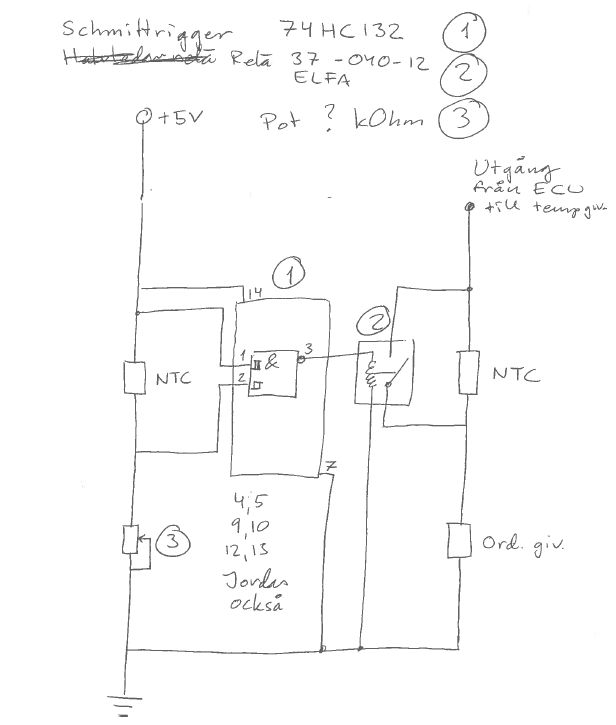 Schmittrigger 74HC132 1
Relä 37-040-12 2
ELFA
+5V Pot ? kOhm 3
Utgång
från ECU
till tempgiv.
1
14
2
1 & 3
2
NTC
NTC
7
4,5
9,10
12,13
Jordas
också
3
Ord. giv.